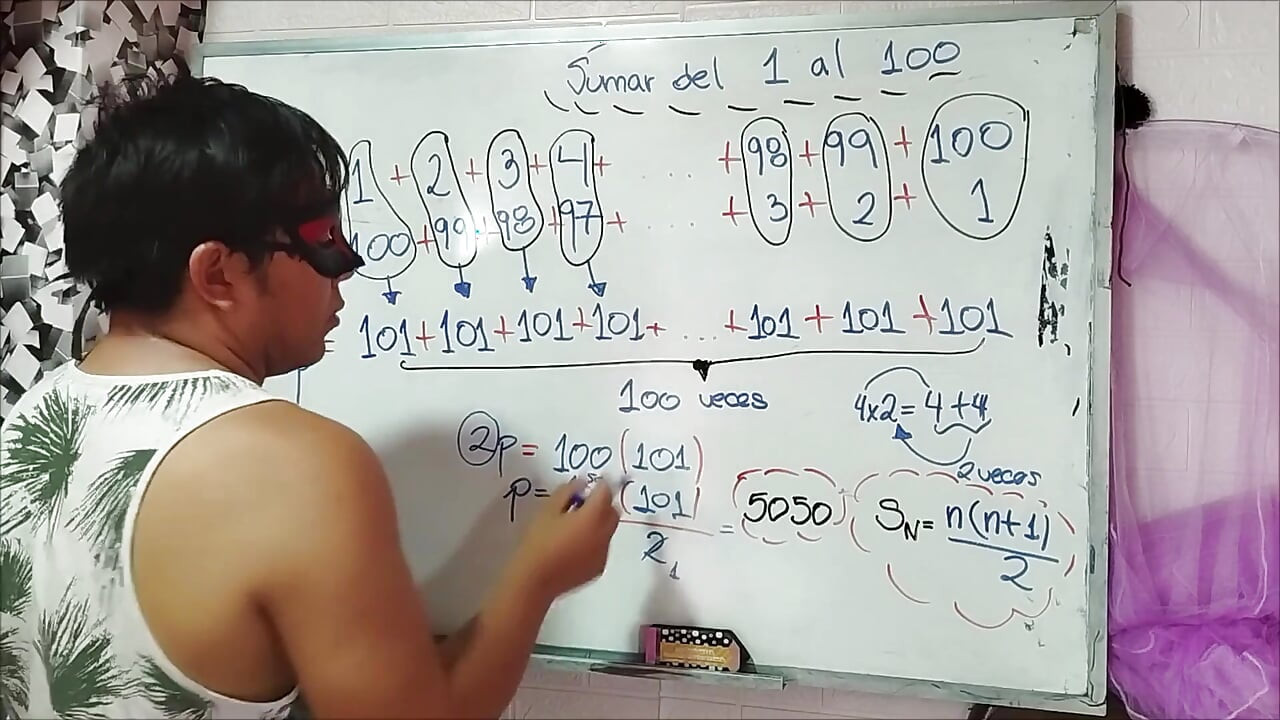 Sumar del 1 al 100
1 + 2 + 3 + 4 + .... + 98 + 99 + 100
100 + 99 + 98 + 97 + .... + 3 + 2 + 1
= 101 + 101 + 101 + 101 + ... + 101 + 101 + 101
100 veces
4x2 = 4 + 4
2 veces
2p = 100 (101)
p = (101) / 2 = 5050
2 1
S_N = n(n+1) / 2